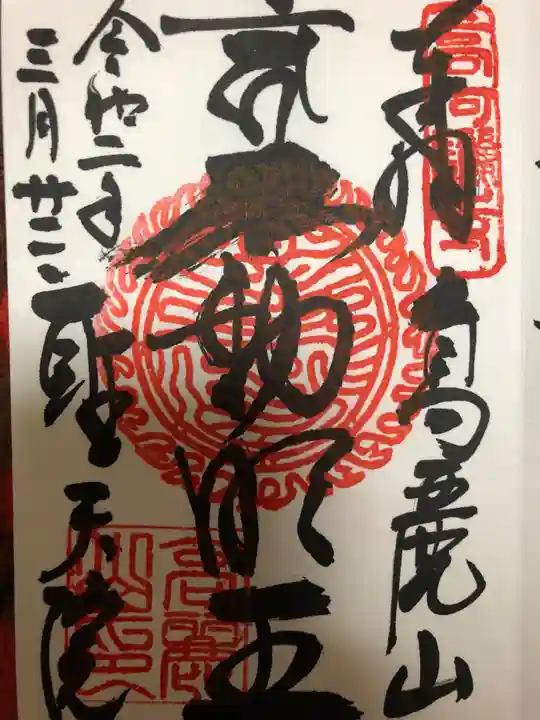 奉拝 高麗山
不動明王
令和二年
三月廿二日
聖天院
高麗
山印